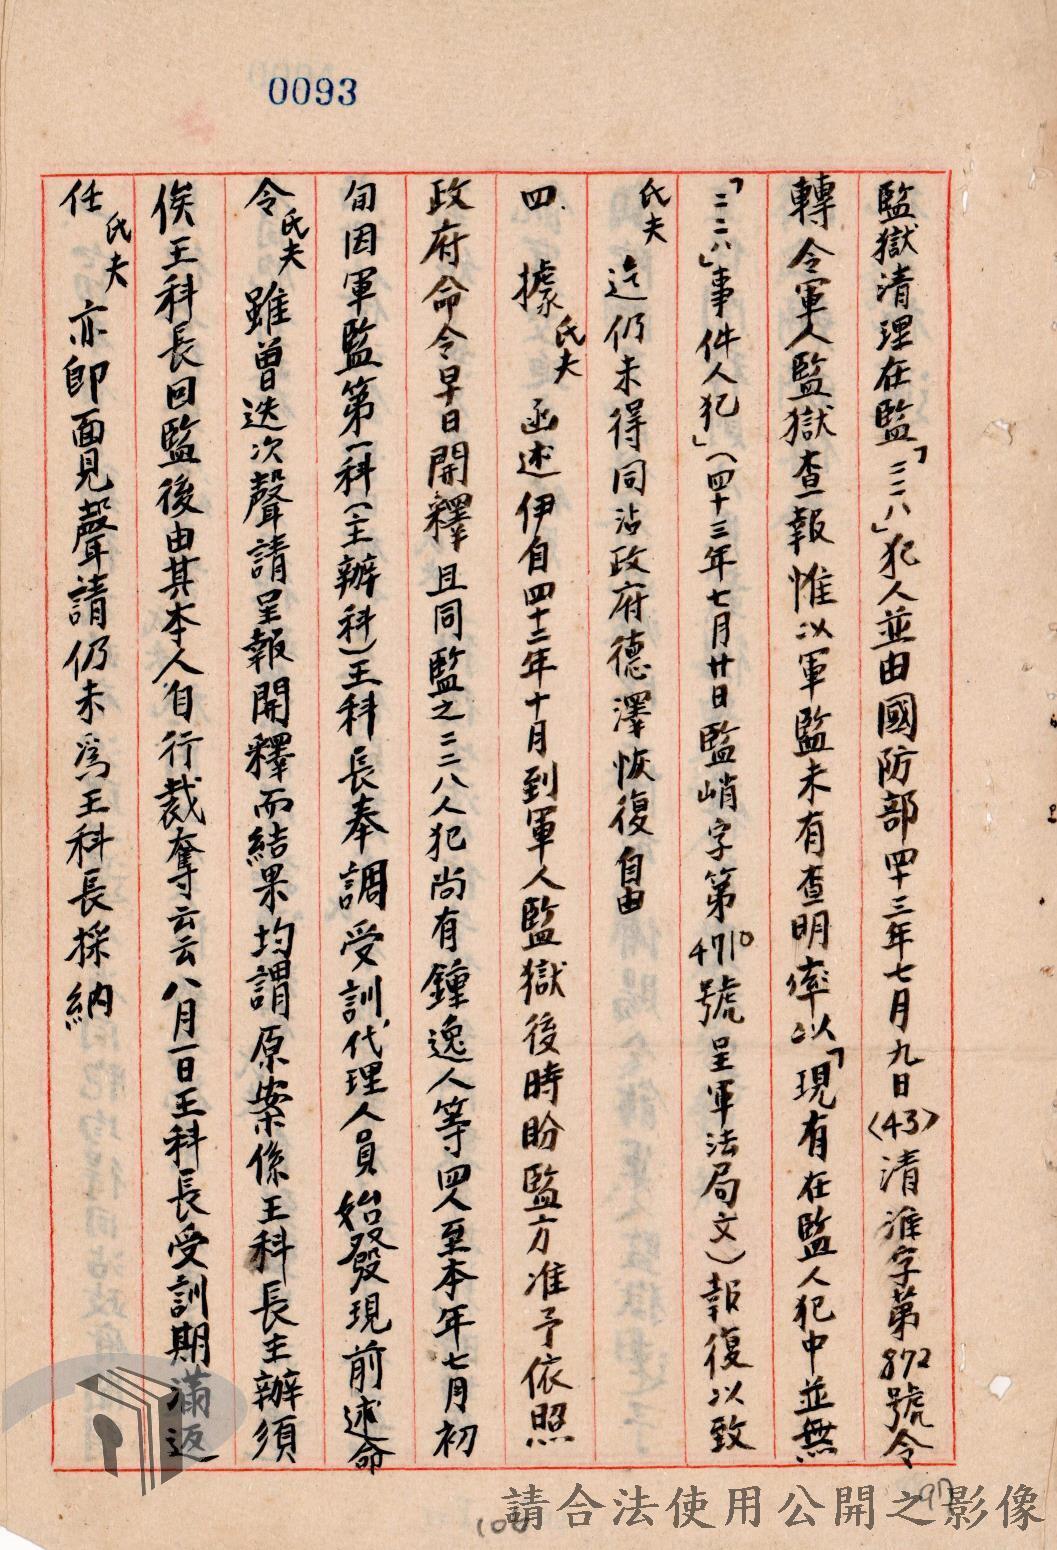 0093
監獄清理在監「二二八」犯人並由國防部四十三年七月九日(43)清淮字第872號令
轉令軍人監獄查報惟以軍監未有查明率以「現有在監人犯中並無
「二二八」事件人犯」(四十三年七月廿日監峭字第4710號呈軍法局文)報復以致
氏夫迄仍未得同沾政府德澤恢復自由
四.據氏夫函述伊自四十二年十月到軍人監獄後時盼監方准予依照
政府命令早日開釋且同監之二二八人犯尚有鍾逸人等四人至本年七月初
旬因軍監第一科(主辦科)王科長奉調受訓代理人員始發現前述命
令氏夫雖曾迭次聲請呈報開釋而結果均謂原案係王科長主辦須
俟王科長回監後由其本人自行裁奪云云八月一日王科長受訓期滿返
任氏夫亦即面見聲請仍未為王科長採納
97
100
請合法使用公開之影像